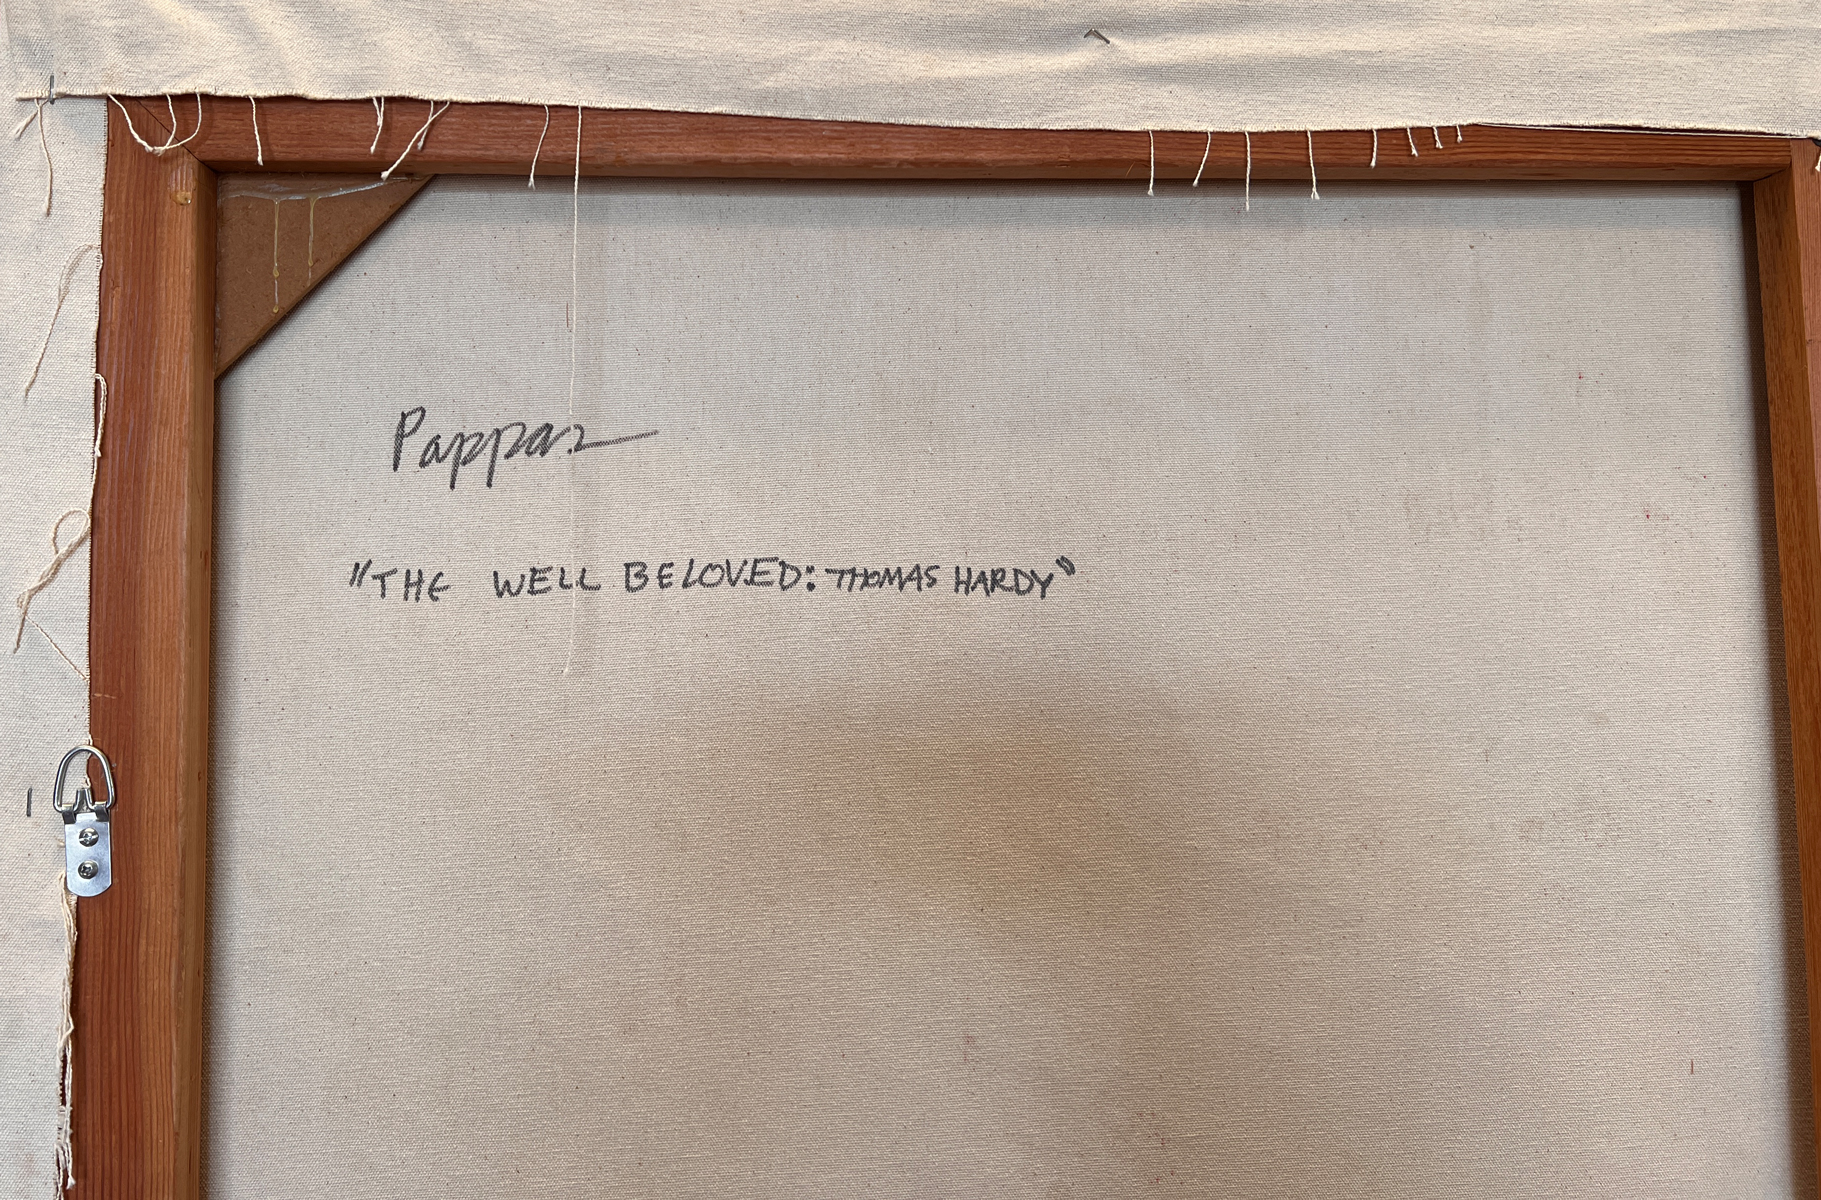 Pappas
"THE WELL BELOVED: THOMAS HARDY"